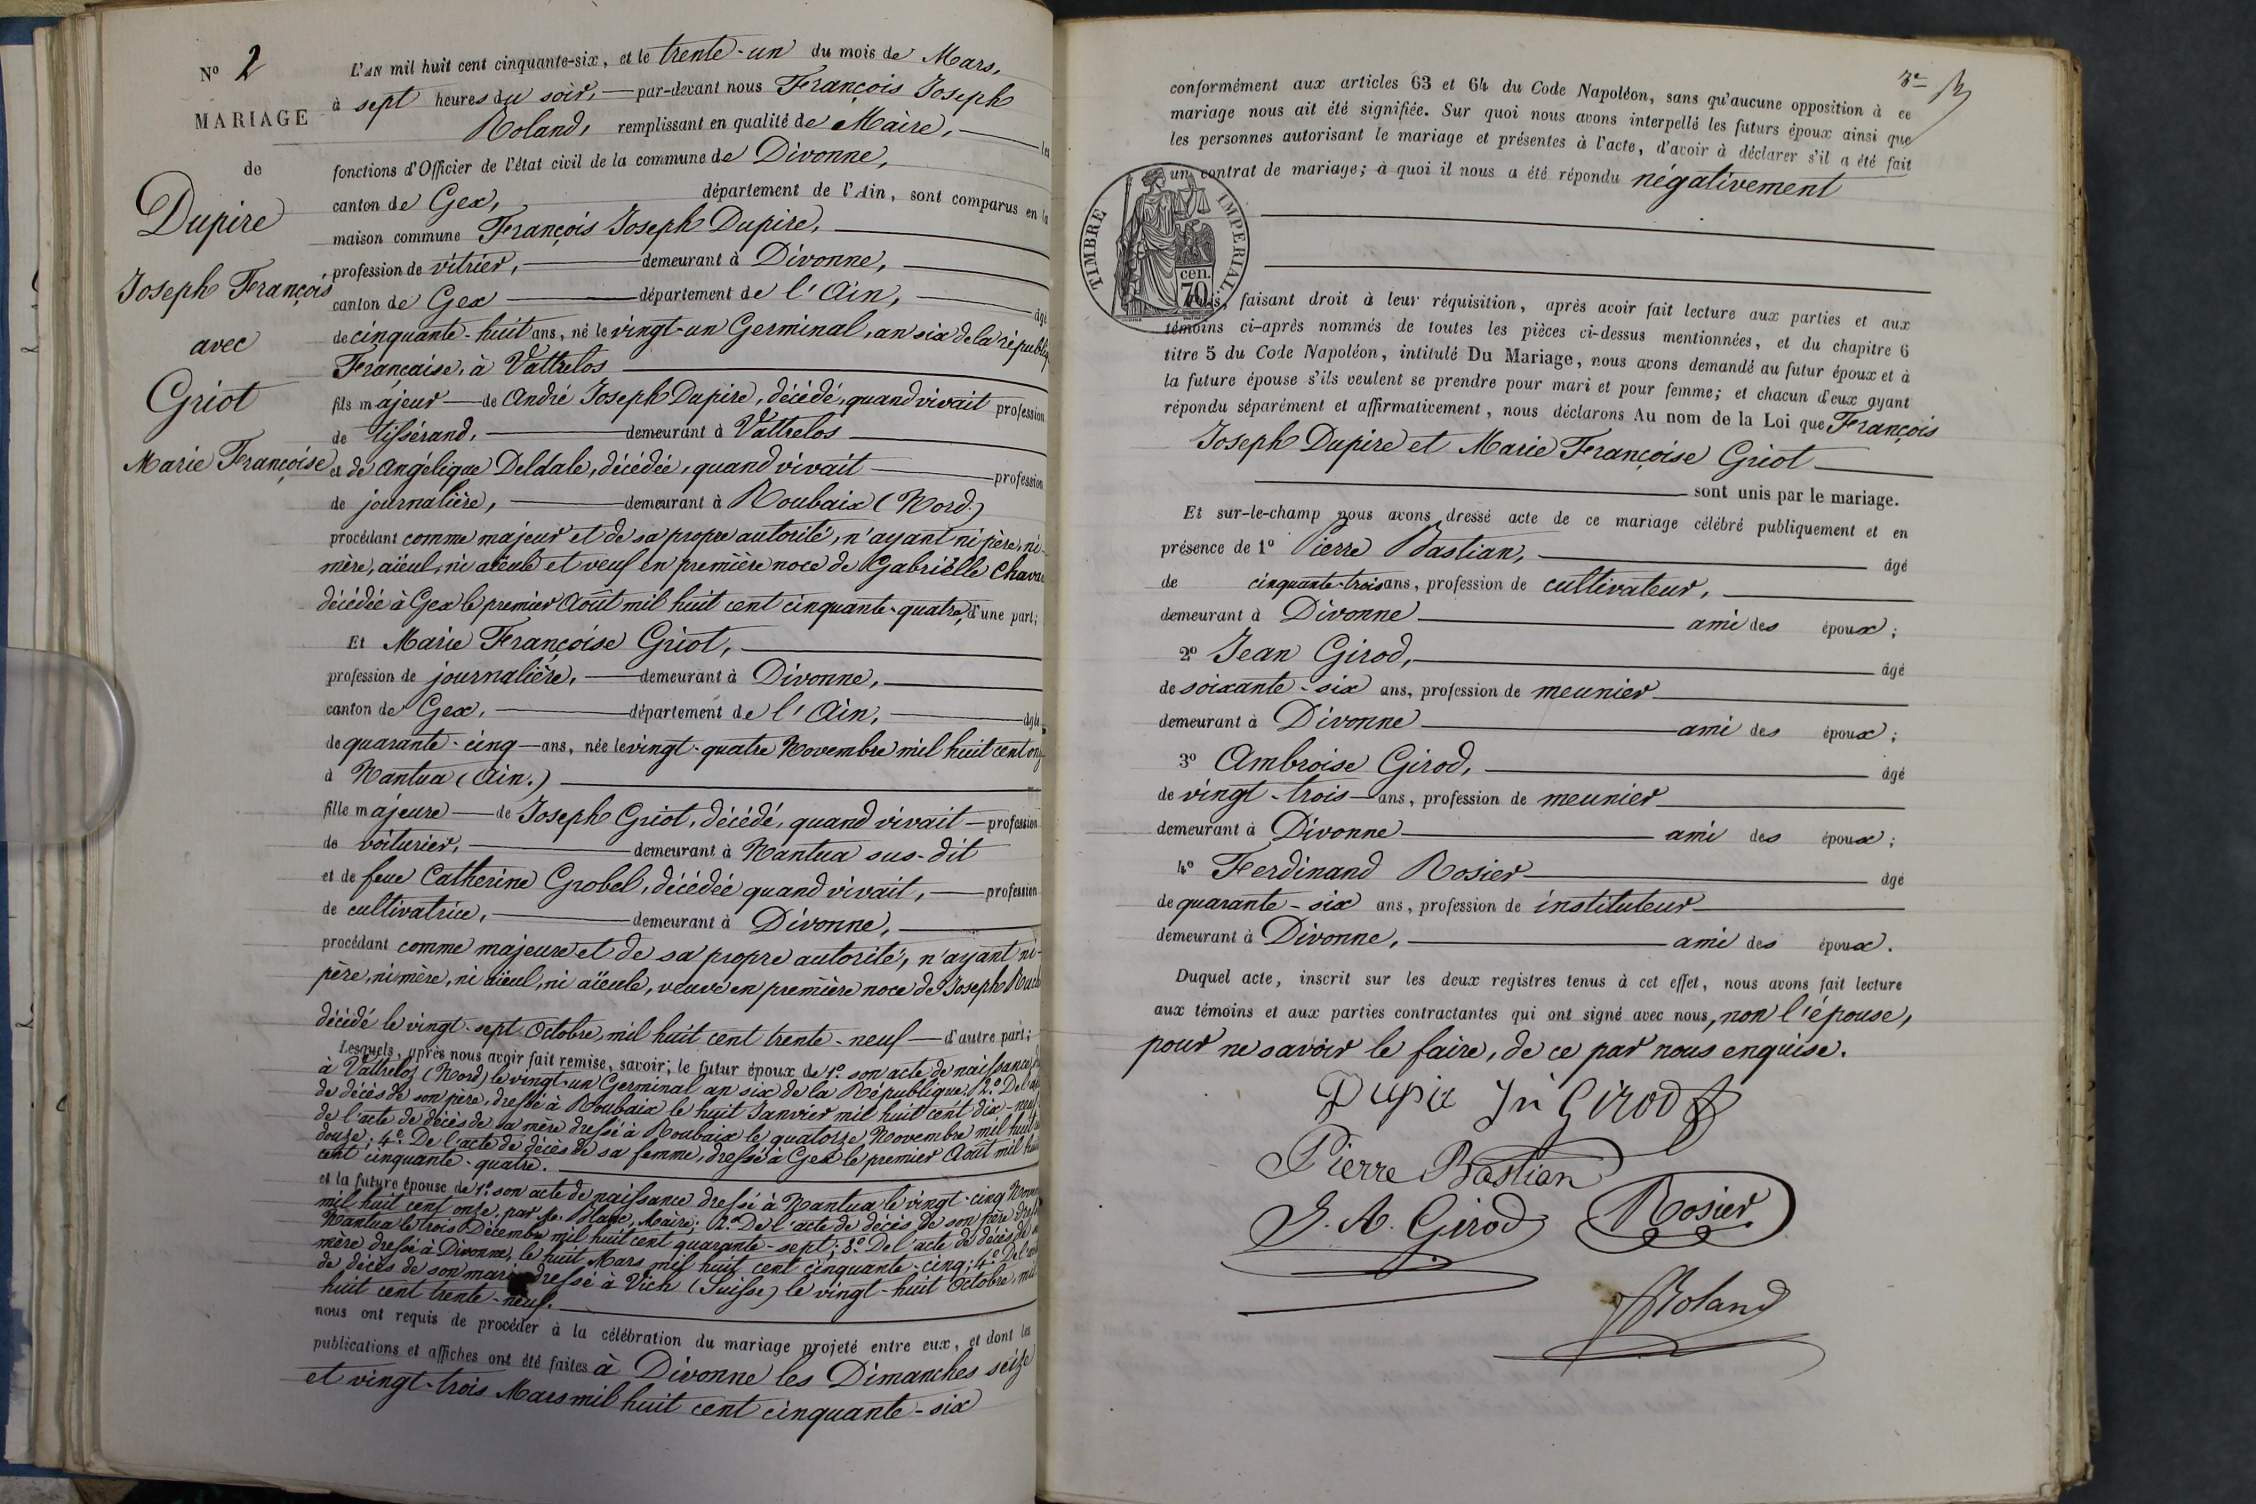 N° 2
MARIAGE
de
Dupire
Joseph François
avec
Griot
Marie Françoise
L'AN mil huit cent cinquante-six, et le trente-un du mois de Mars,
à sept heures du soir, par-devant nous François Joseph
Roland, remplissant en qualité de Maire, les
fonctions d'Officier de l'état civil de la commune de Divonne,
canton de Gex, département de l'Ain, sont comparus en la
maison commune François Joseph Dupire,
profession de vitrier, demeurant à Divonne,
canton de Gex département de l'Ain, âgé
de cinquante-huit ans, né le vingt-un Germinal, an six de la républiq
Française, à Vattrelos
fils majeur de André Joseph Dupire, décédé, quand vivait profession
de tissérand, demeurant à Vattrelos
et de Angélique Deldale, décédée, quand vivait profession
de journalière, demeurant à Roubaix (Nord.)
procédant comme majeur et de sa propre autorité, n'ayant ni père, ni
mère, aïeul, ni aïeule et veuf en première noce de Gabriélle
décédée à Gex le premier Août mil huit cent cinquante-quatre, d'une part;
Et Marie Françoise Griot,
profession de journalière, demeurant à Divonne,
canton de Gex, département de l'Ain, âgée
de quarante-cinq ans, née le vingt-quatre Novembre mil huit cent onz
à Nantua (Ain.)
fille majeure de Joseph Griot, décédé, quand vivait profession
de voiturier, demeurant à Nantua sus-dit
et de feue Catherine Grobel, décédée quand vivait, profession
de cultivatrice, demeurant à Divonne,
procédant comme majeure et de sa propre autorité, n'ayant ni
père, ni mère, ni aïeul, ni aïeule, veuve en première noce de Joseph
décédé le vingt-sept Octobre, mil huit cent trente-neuf d'autre part;
Lesquels, après nous avoir fait remise, savoir; le futur époux de 1° son acte de naissance
à Vattrelos (Nord) le vingt-un Germinal an six de la République. 2° De l'
de décès de son père, dressé à Roubaix le huit Janvier mil huit cent dix-neuf
de l'acte de décès de sa mère dressé à Roubaix le quatorze Novembre mil huit
douze; 4° De l'acte de décès de sa femme, dressé à Gex le premier Août mil hui
cent cinquante-quatre.
et la future épouse de 1° son acte de naissance dressé à Nantua le vingt-cinq
mil huit cent onze, par Mr. Blanc, Maire; 2° De l'acte de décès de son père
Nantua le trois Décembre mil huit cent quarante-sept; 3° De l'acte de décès de
mère dressé à Divonne, le huit Mars mil huit cent cinquante-cinq; 4° De
de décès de son mari dressé à Vich (Suisse) le vingt-huit Octobre, mil
huit cent trente-neuf.
nous ont requis de procéder à la célébration du mariage projeté entre eux, et dont les
publications et affiches ont été faites à Divonne les Dimanches seize
et vingt-trois Mars mil huit cent cinquante-six
3e
conformément aux articles 63 et 64 du Code Napoléon, sans qu'aucune opposition à ce
mariage nous ait été signifiée. Sur quoi nous avons interpellé les futurs époux ainsi que
les personnes autorisant le mariage et présentes à l'acte, d'avoir à déclarer s'il a été fait
un contrat de mariage; à quoi il nous a été répondu négativement
TIMBRE IMPERIAL
70 cen.
faisant droit à leur réquisition, après avoir fait lecture aux parties et aux
témoins ci-après nommés de toutes les pièces ci-dessus mentionnées, et du chapitre 6
titre 5 du Code Napoléon, intitulé Du Mariage, nous avons demandé au futur époux et à
la future épouse s'ils veulent se prendre pour mari et pour femme; et chacun d'eux ayant
répondu séparément et affirmativement, nous déclarons Au nom de la Loi que François
Joseph Dupire et Marie Françoise Griot
sont unis par le mariage.
Et sur-le-champ nous avons dressé acte de ce mariage célébré publiquement et en
présence de 1° Pierre Bastian, âgé
de cinquante-trois ans, profession de cultivateur,
demeurant à Divonne ami des époux;
2° Jean Girod, âgé
de soixante-six ans, profession de meunier
demeurant à Divonne ami des époux;
3° Ambroise Girod, âgé
de vingt-trois ans, profession de meunier
demeurant à Divonne ami des époux;
4° Ferdinand Rosier âgé
de quarante-six ans, profession de instituteur
demeurant à Divonne, ami des époux.
Duquel acte, inscrit sur les deux registres tenus à cet effet, nous avons fait lecture
aux témoins et aux parties contractantes qui ont signé avec nous, non l'épouse,
pour ne savoir le faire, de ce par nous enquise.
Dupire Jn Girod
Pierre Bastian
J. A. Girod Rosier
Roland